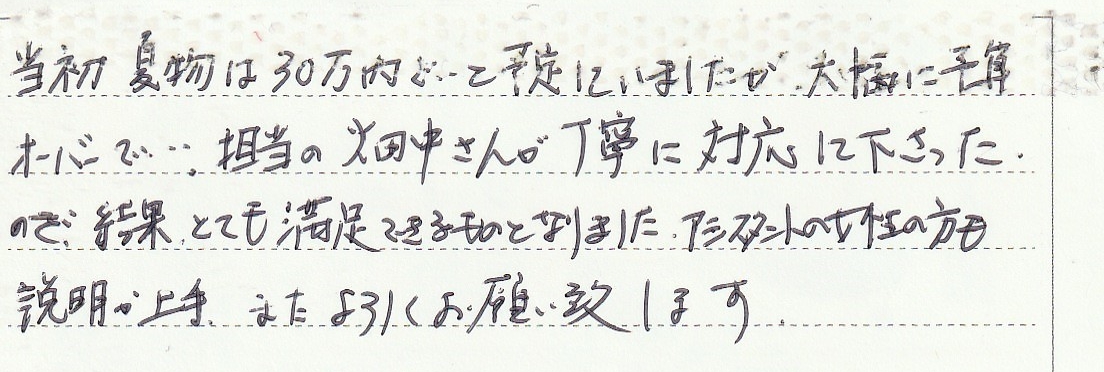 当初 夏物は30万内で…と予定していましたが、大幅に予算
オーバーで…。担当の畑中さんが丁寧に対応して下さった
ので、結果、とても満足できるものとなりました。アシスタントの女性の方も
説明が上手、またよろしくお願い致します。